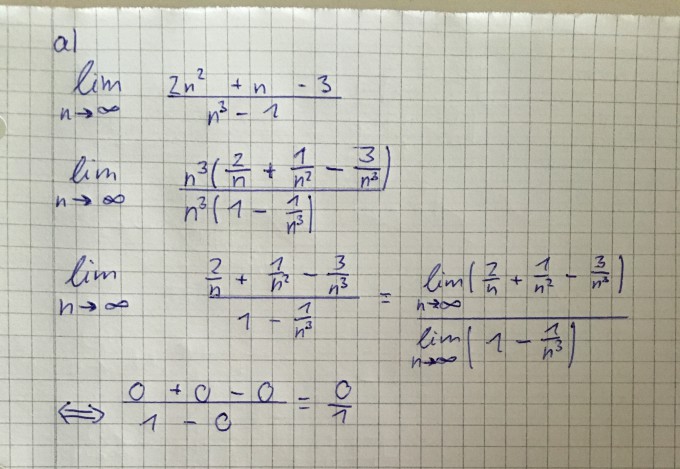 a)
lim n→∞ (2n² + n - 3) / (n³ - 1)
lim n→∞ n³(2/n + 1/n² - 3/n³) / n³(1 - 1/n³)
lim n→∞ (2/n + 1/n² - 3/n³) / (1 - 1/n³) = lim n→∞ (2/n + 1/n² - 3/n³) / lim n→∞ (1 - 1/n³)
⟺ (0 + 0 - 0) / (1 - 0) = 0/1